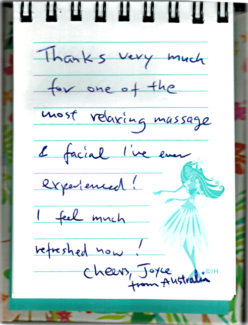 Thanks very much
for one of the
most relaxing massage
& facial I've ever
experienced!
I feel much
refreshed now!
Cheers, Joyce
from Australia
©IH